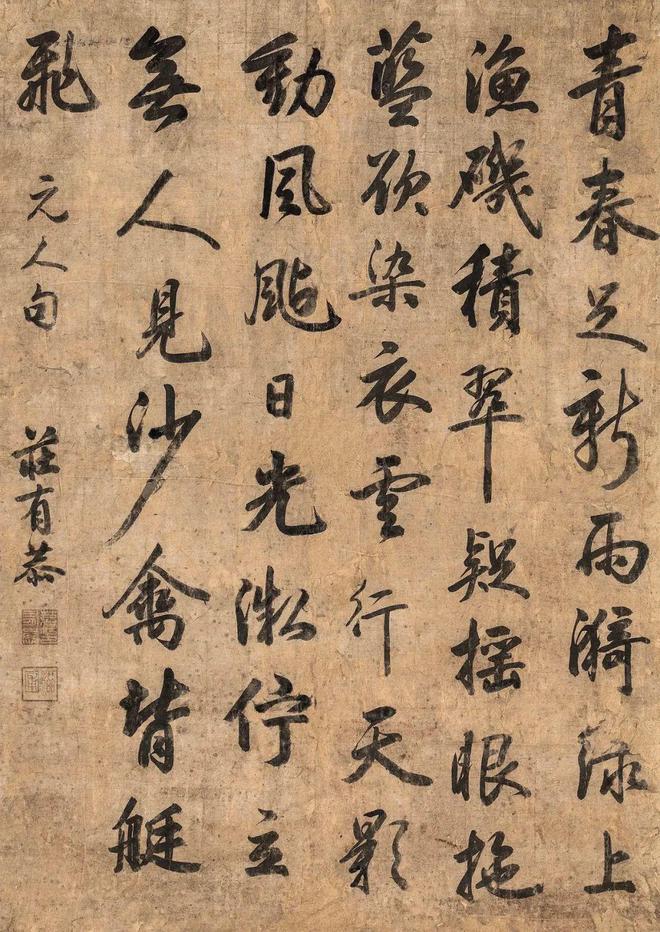 青春足新雨漪渌上
漁磯積翠疑摇眼拖
藍欲染衣雲行天影
動風颭日光溦佇立
無人見沙禽背艇
飛 元人句
莊有恭